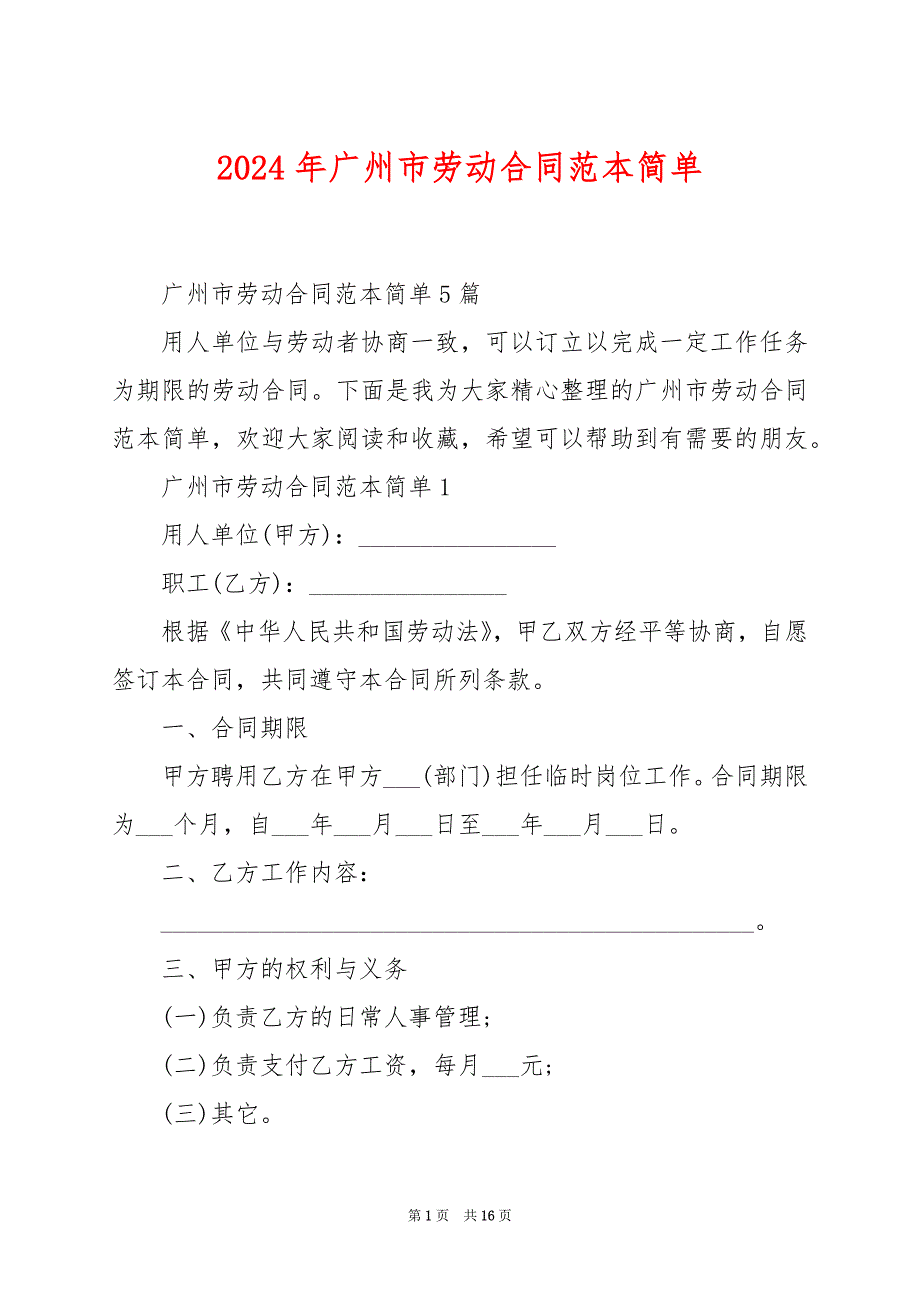 2024 年广州市劳动合同范本简单
广州市劳动合同范本简单 5 篇
用人单位与劳动者协商一致，可以订立以完成一定工作任务
为期限的劳动合同。下面是我为大家精心整理的广州市劳动合同
范本简单，欢迎大家阅读和收藏，希望可以帮助到有需要的朋友。
广州市劳动合同范本简单 1
用人单位(甲方)：________________
职工(乙方)：________________
根据《中华人民共和国劳动法》，甲乙双方经平等协商，自愿
签订本合同，共同遵守本合同所列条款。
一、合同期限
甲方聘用乙方在甲方___(部门)担任临时岗位工作。合同期限
为___个月，自___年___月___日至___年___月___日。
二、乙方工作内容：
________________________________________________。
三、甲方的权利与义务
(一)负责乙方的日常人事管理;
(二)负责支付乙方工资，每月___元;
(三)其它。
第 1 页 共 16 页